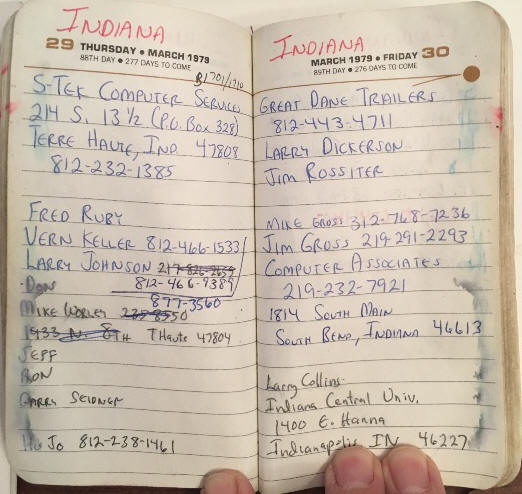 INDIANA
29 THURSDAY • MARCH 1979
88TH DAY • 277 DAYS TO COME
S-TEK COMPUTER SERVICES
214 S. 13 1/2 (P.O. BOX 328)
TERRE HAUTE, IND 47808
812-232-1385
FRED RUBY
VERN KELLER 812-466-1533
LARRY JOHNSON
DON 812-466-9389
877-3560
MIKE WORLEY
THaute 47804
JEFF
RON
LARRY SEIDNER
HO JO 812-238-1461
INDIANA
MARCH 1979 • FRIDAY 30
89TH DAY • 276 DAYS TO COME
GREAT DANE TRAILERS
812-443-4711
LARRY DICKERSON
JIM ROSSITER
MIKE GROSS 312-768-7236
JIM GROSS 219-291-2293
COMPUTER ASSOCIATES
219-232-7921
1814 SOUTH MAIN
SOUTH BEND, INDIANA 46613
Larry Collins
Indiana Central Univ.
1400 E. Hanna
Indianapolis IN 46227